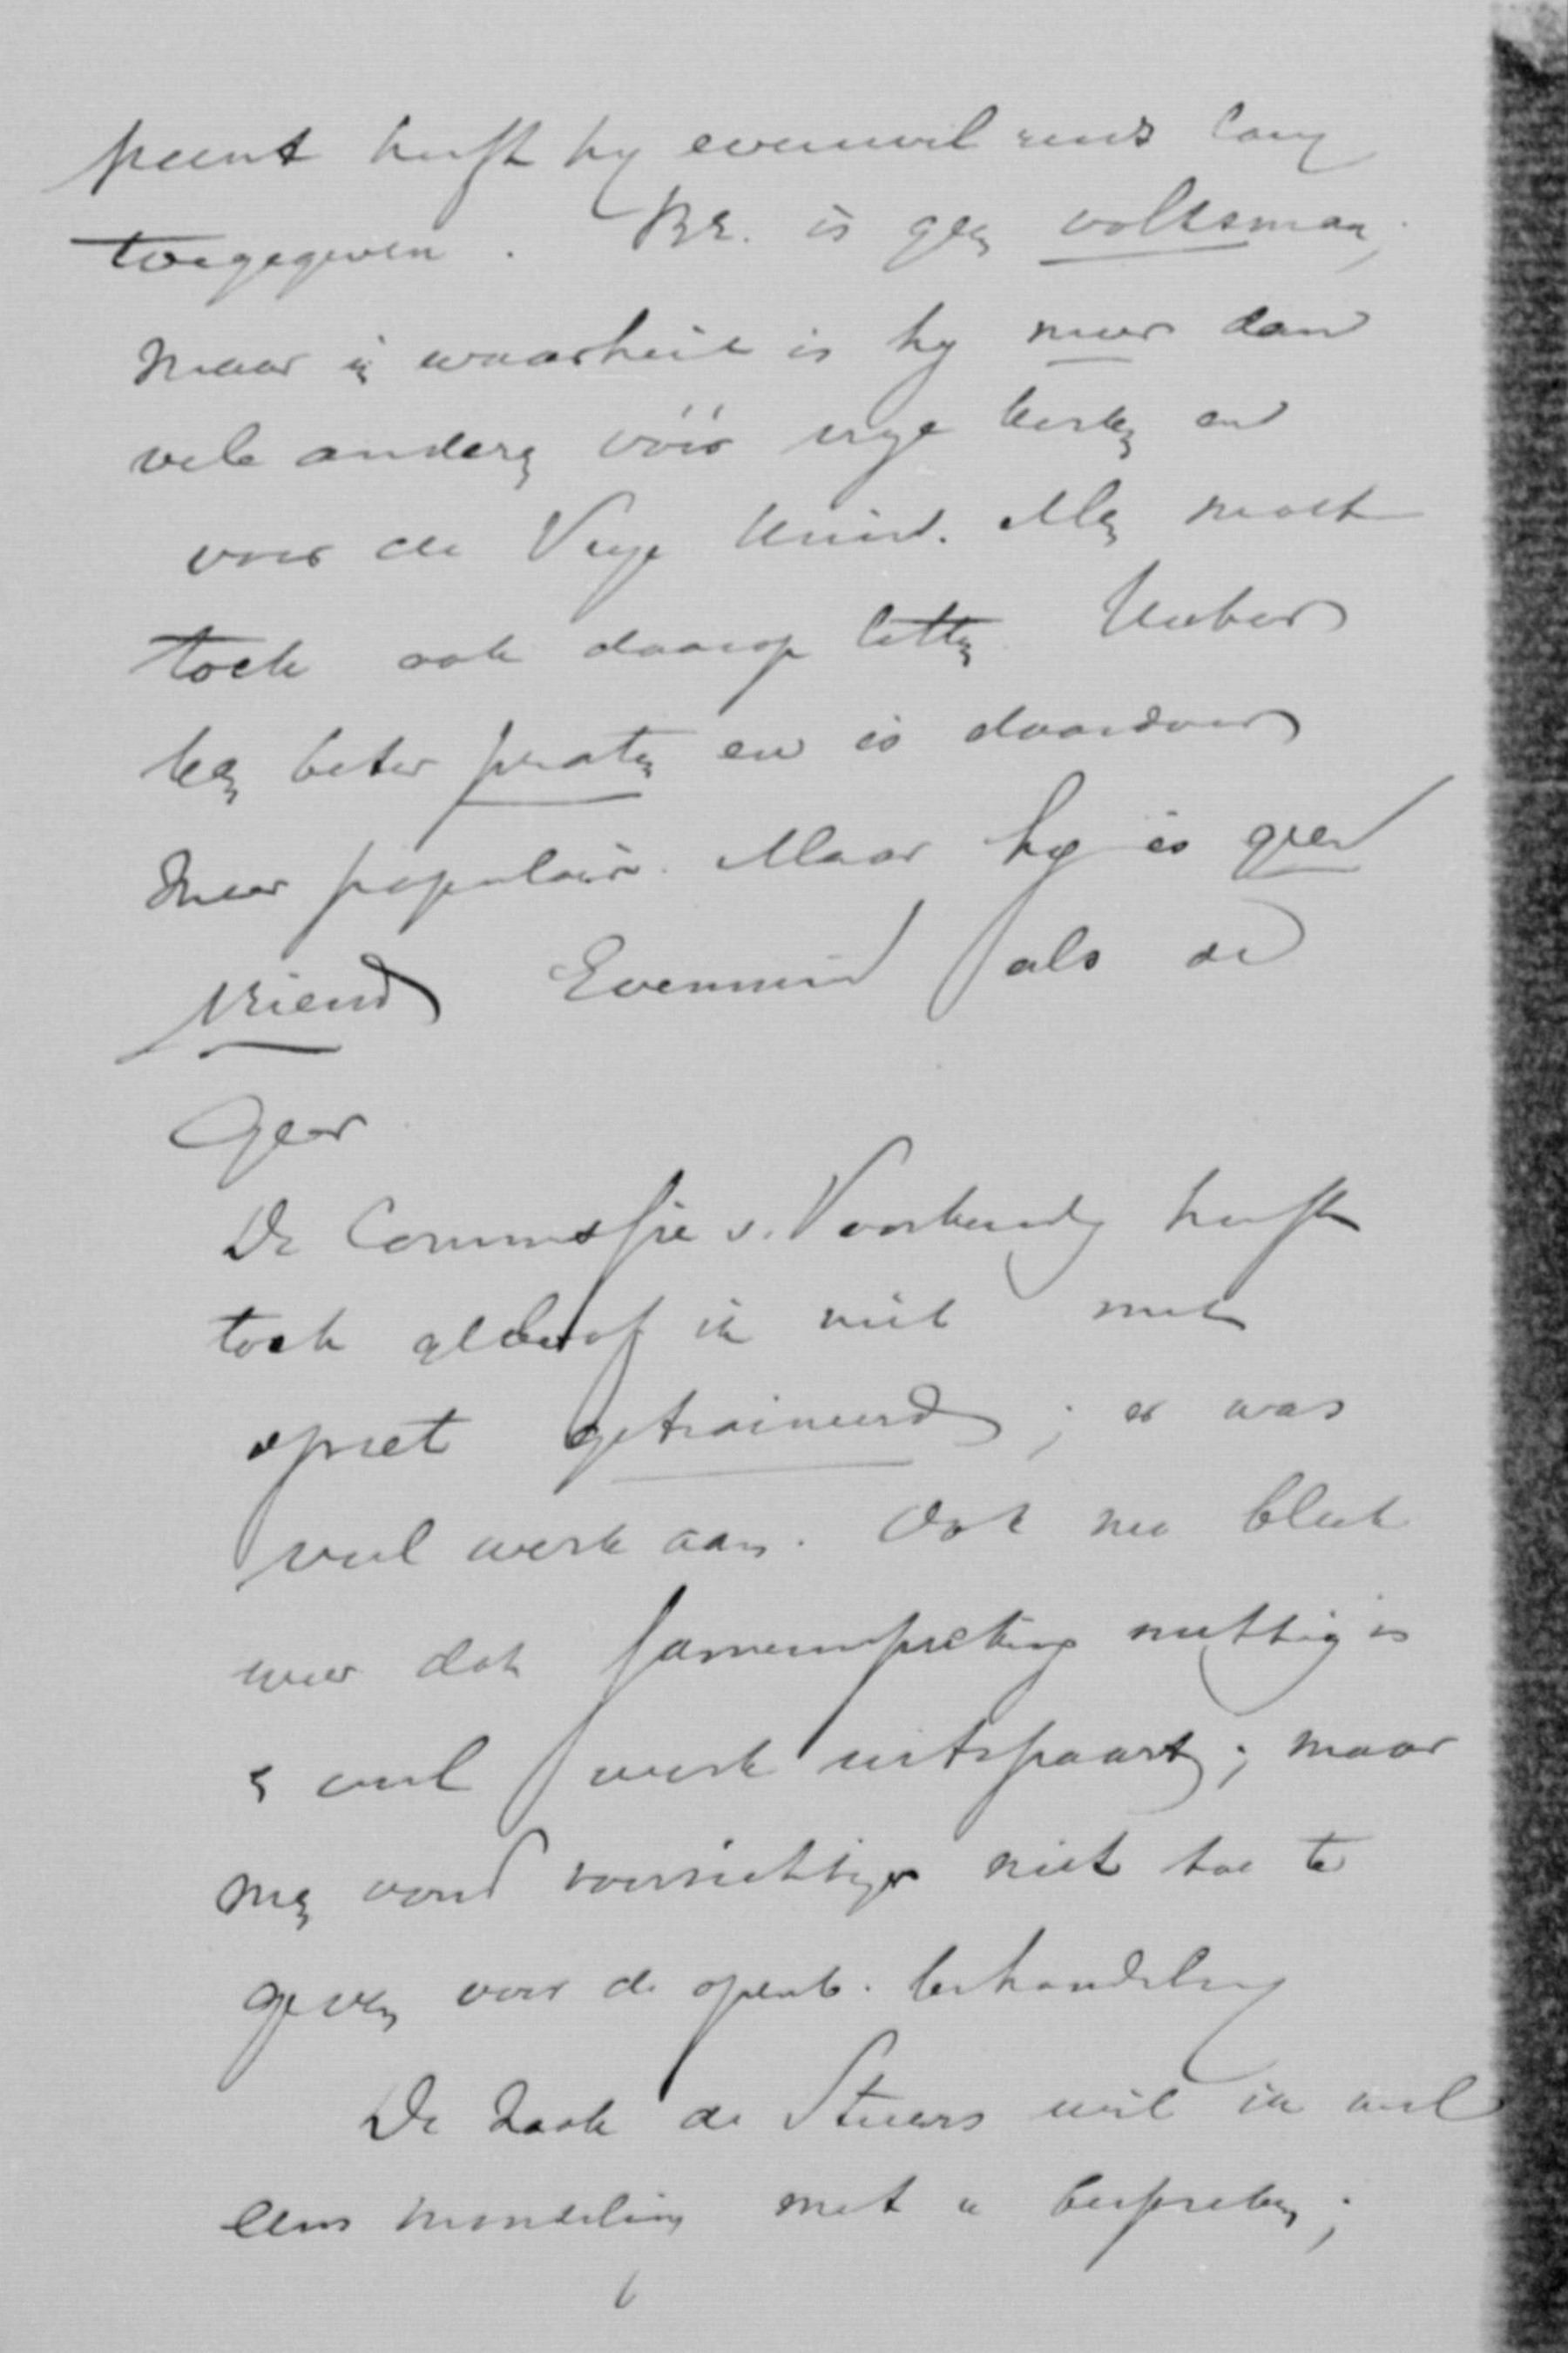 punt heeft hy evenwel reeds lang
toegegeven. Br. is geen volksman,
maar in waarheid is hy meer dan
vele anderen vóór vrye kerken en
voor de Vrye Univ. Men moet
toch ook daarop letten. Heeber
kan beter praten en is daardoor
meer populair. Maar hy is geen
vriend Evenmin als de
Geer
De Commissie v. Voorbereidg heeft
toch geloof ik niet met
opzet getraineerd; er was
veel werk aan. Ook nu bleek
weer dat samenspreking nuttig is
en veel werk uitspaart; maar
men vond voorzichtiger niet toe te
geven voor de openb. behandeling
De zaak de Stuers wil ik wel
eens mondeling met u bespreken;